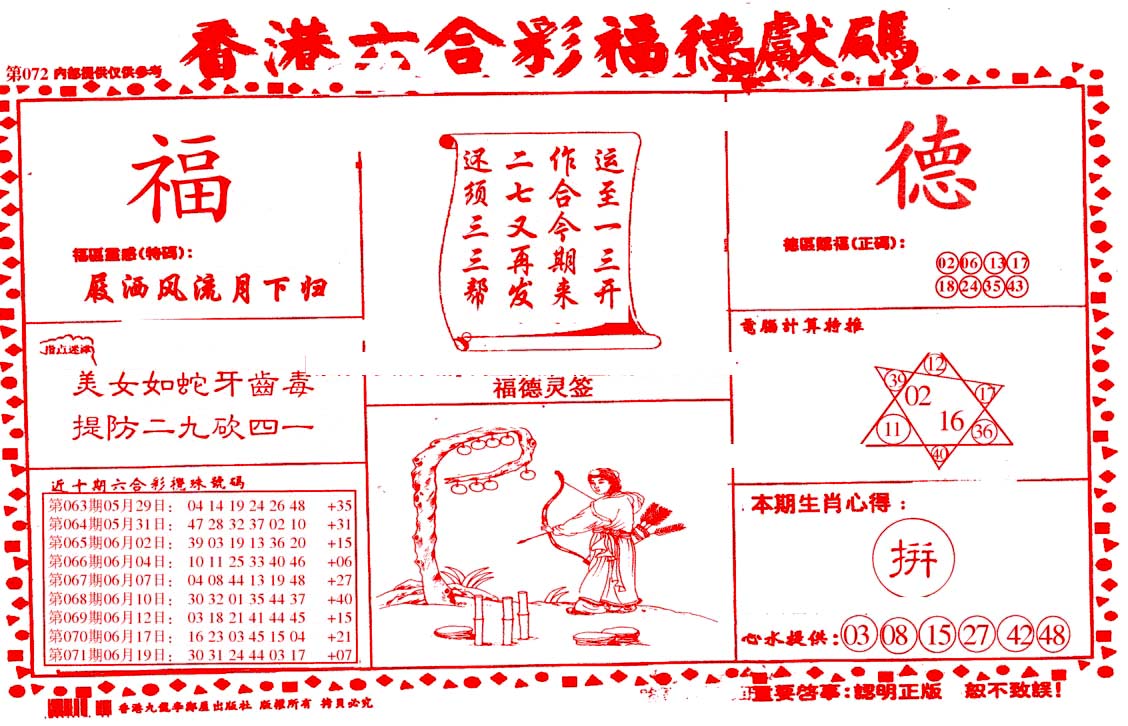 香港六合彩福德獻碼
第072 内部提供仅供参考
福
福區靈感(特碼):
屐洒风流月下归
指点迷津
美女如蛇牙齒毒
提防二九砍四一
近十期六合彩攪珠號碼
第063期05月29日: 04 14 19 24 26 48 +35
第064期05月31日: 47 28 32 37 02 10 +31
第065期06月02日: 39 03 19 13 36 20 +15
第066期06月04日: 10 11 25 33 40 46 +06
第067期06月07日: 04 08 44 13 19 48 +27
第068期06月10日: 30 32 01 35 44 37 +40
第069期06月12日: 03 18 21 41 44 45 +15
第070期06月17日: 16 23 03 45 15 04 +21
第071期06月19日: 30 31 24 44 03 17 +07
运至一三开
作合今期来
二七又再发
还须三三帮
福德灵签
德
德區賜福(正碼):
02 06 13 17
18 24 35 43
電腦計算特推
12
39 02 17
11 16 36
40
本期生肖心得:
拼
心水提供: 03 08 15 27 42 48
重要啓事:認明正版 恕不致誤!
版權所有 拷貝必究